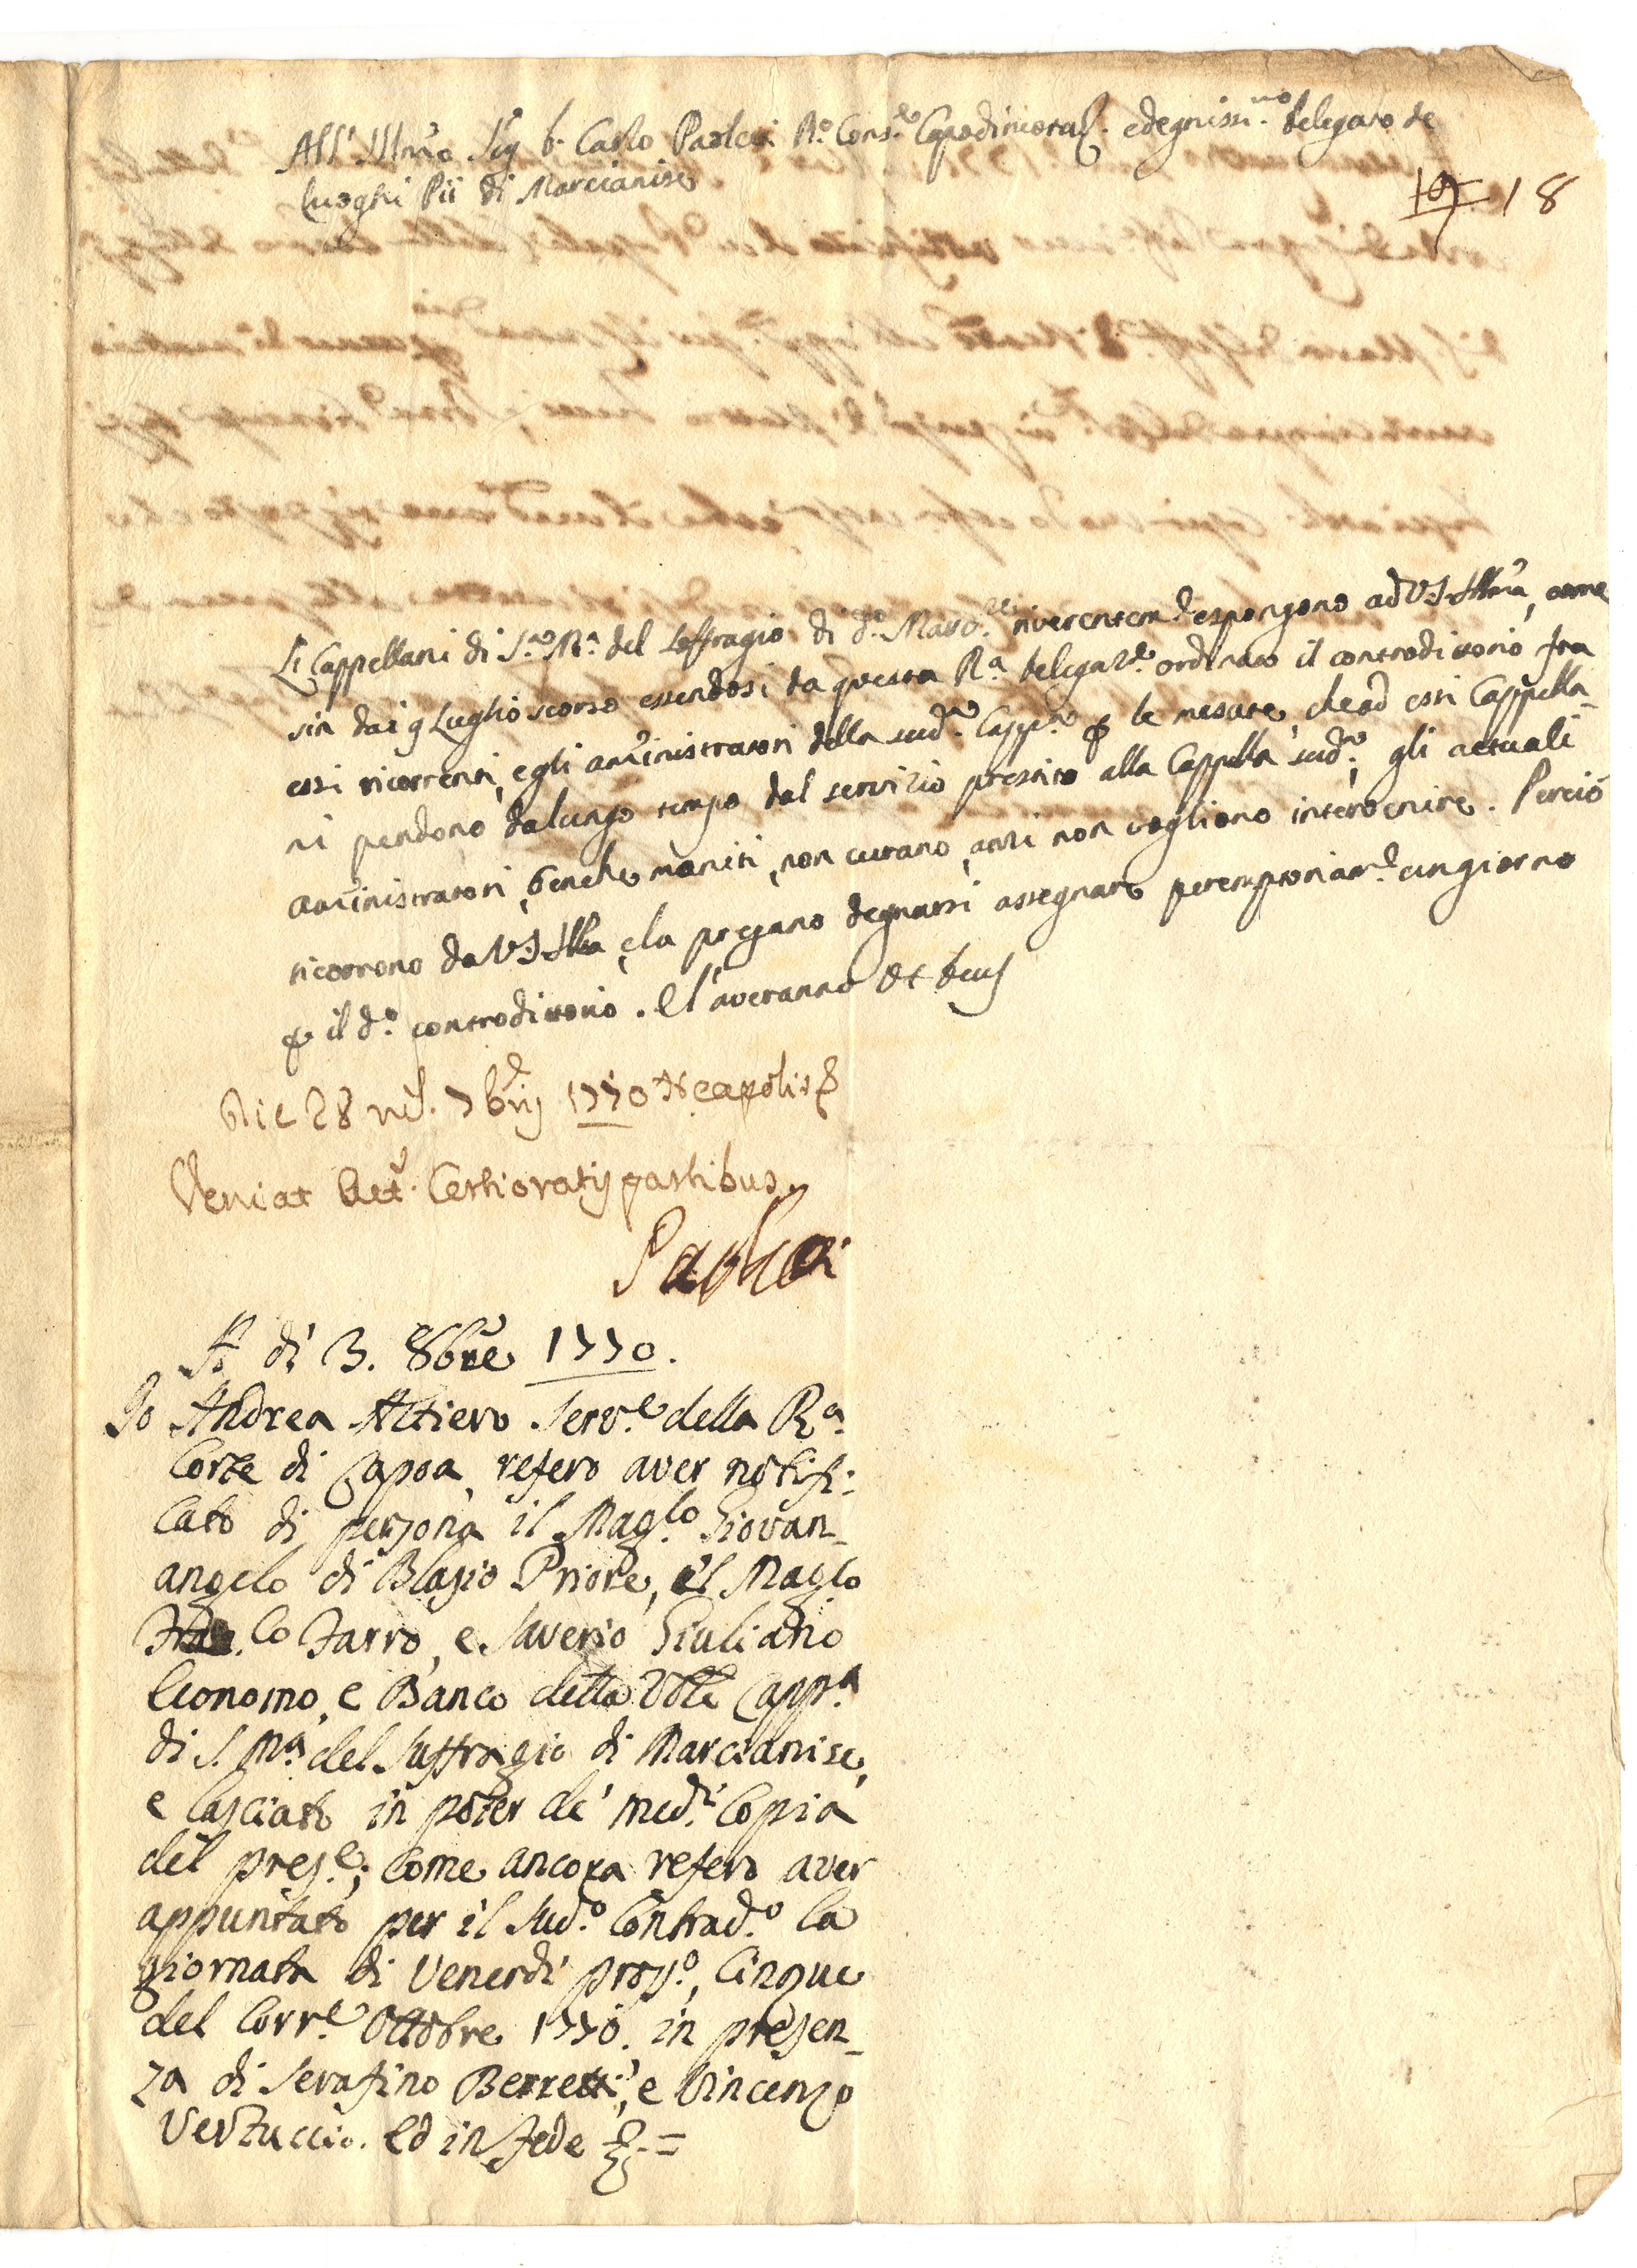 All' Illmo Sig D. Carlo Paoleti R.o Cons.ro Capodirota. e degnissi.mo Delegato de
luoghi Pii di Marcianise
19 18
Li Cappellani di S.a M.a del Soffragio di d.o Marc.se riverentem.e espongono ad V.S. Illma, come
sin dai 9 Luglio scorso essendosi da questa R.a Delegaz.e ordinato il contradittorio fra
essi ricorrenti, e gli am̃inistratori della sud.a Capp.a p le mesate, che ad essi Cappella_
ni pendono da lungo tempo dal servizio prestito alla Cappella sud.a, gli attuali
am̃inistratori, benche moniti, non curano, anzi non vogliono intervenire. Perciò
ricorrono da V.S. Illma, e la pregano degnarsi assegnare peremptoriam.e un giorno
p il d.o contradittorio. E l'averanno ut Deus
Die 28 m. 7bris 1770 Neapolis
Veniat Act. Certioratis partibus
A di 3. 8bre 1770.
Io Andrea Altiero Serv.e della R.a
Corte di Capoa, refero aver notifi:
cato di persona il Mag.co Giovan_
angelo di Blasio Priore, il Mag.co
Co Farro, e Saverio Giuliano
Economo, e Banco della Ven.le Capp.a
di S. M.a del Suffragio di Marcianise,
e lasciato in poter de' med.i Copia
del pres.e; come ancora refero aver
appuntato per il sud.o Contrad.o la
giornata di Venerdi pros.o, Cinque
del Corr.e Ottobre 1770. in presen_
za di Serafino Berretti, e Vincenzo
Vertuccio. Ed in fede =